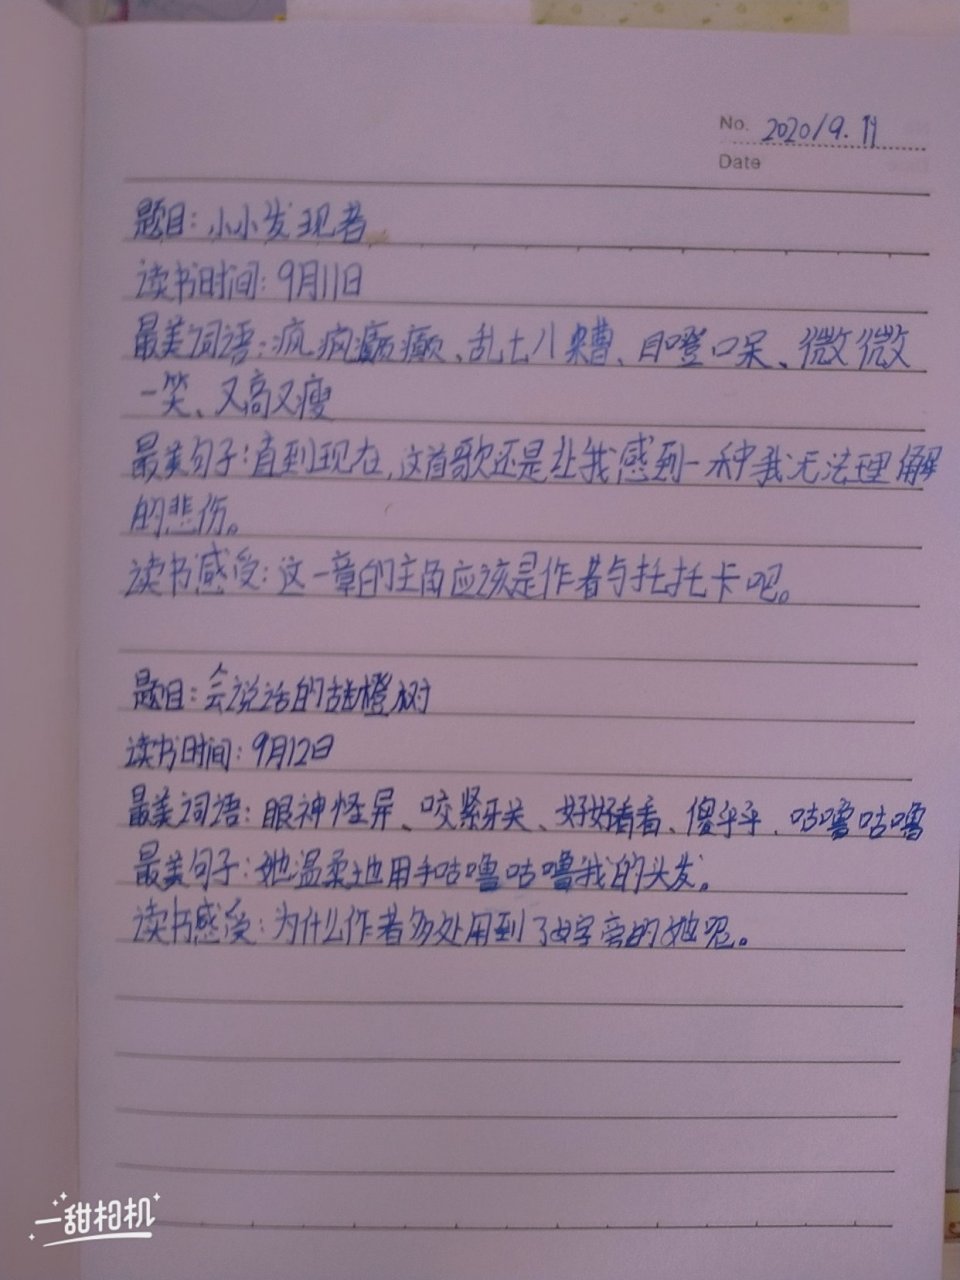 No. 2020/9.11
Date
题目：小小发现者
读书时间：9月11日
最美词语：疯疯癫癫、乱七八糟、目瞪口呆、微微
一笑、又高又瘦
最美句子：直到现在，这首歌还是让我感到一种我无法理解
的悲伤。
读书感受：这一章的主角应该是作者与托托卡吧。
题目：会说话的甜橙树
读书时间：9月12日
最美词语：眼神怪异、咬紧牙关、好好看看、傻乎乎、咕噜咕噜
最美句子：她温柔地用手咕噜咕噜我的头发。
读书感受：为什么作者多处用到了女字旁的她呢。
一甜相机